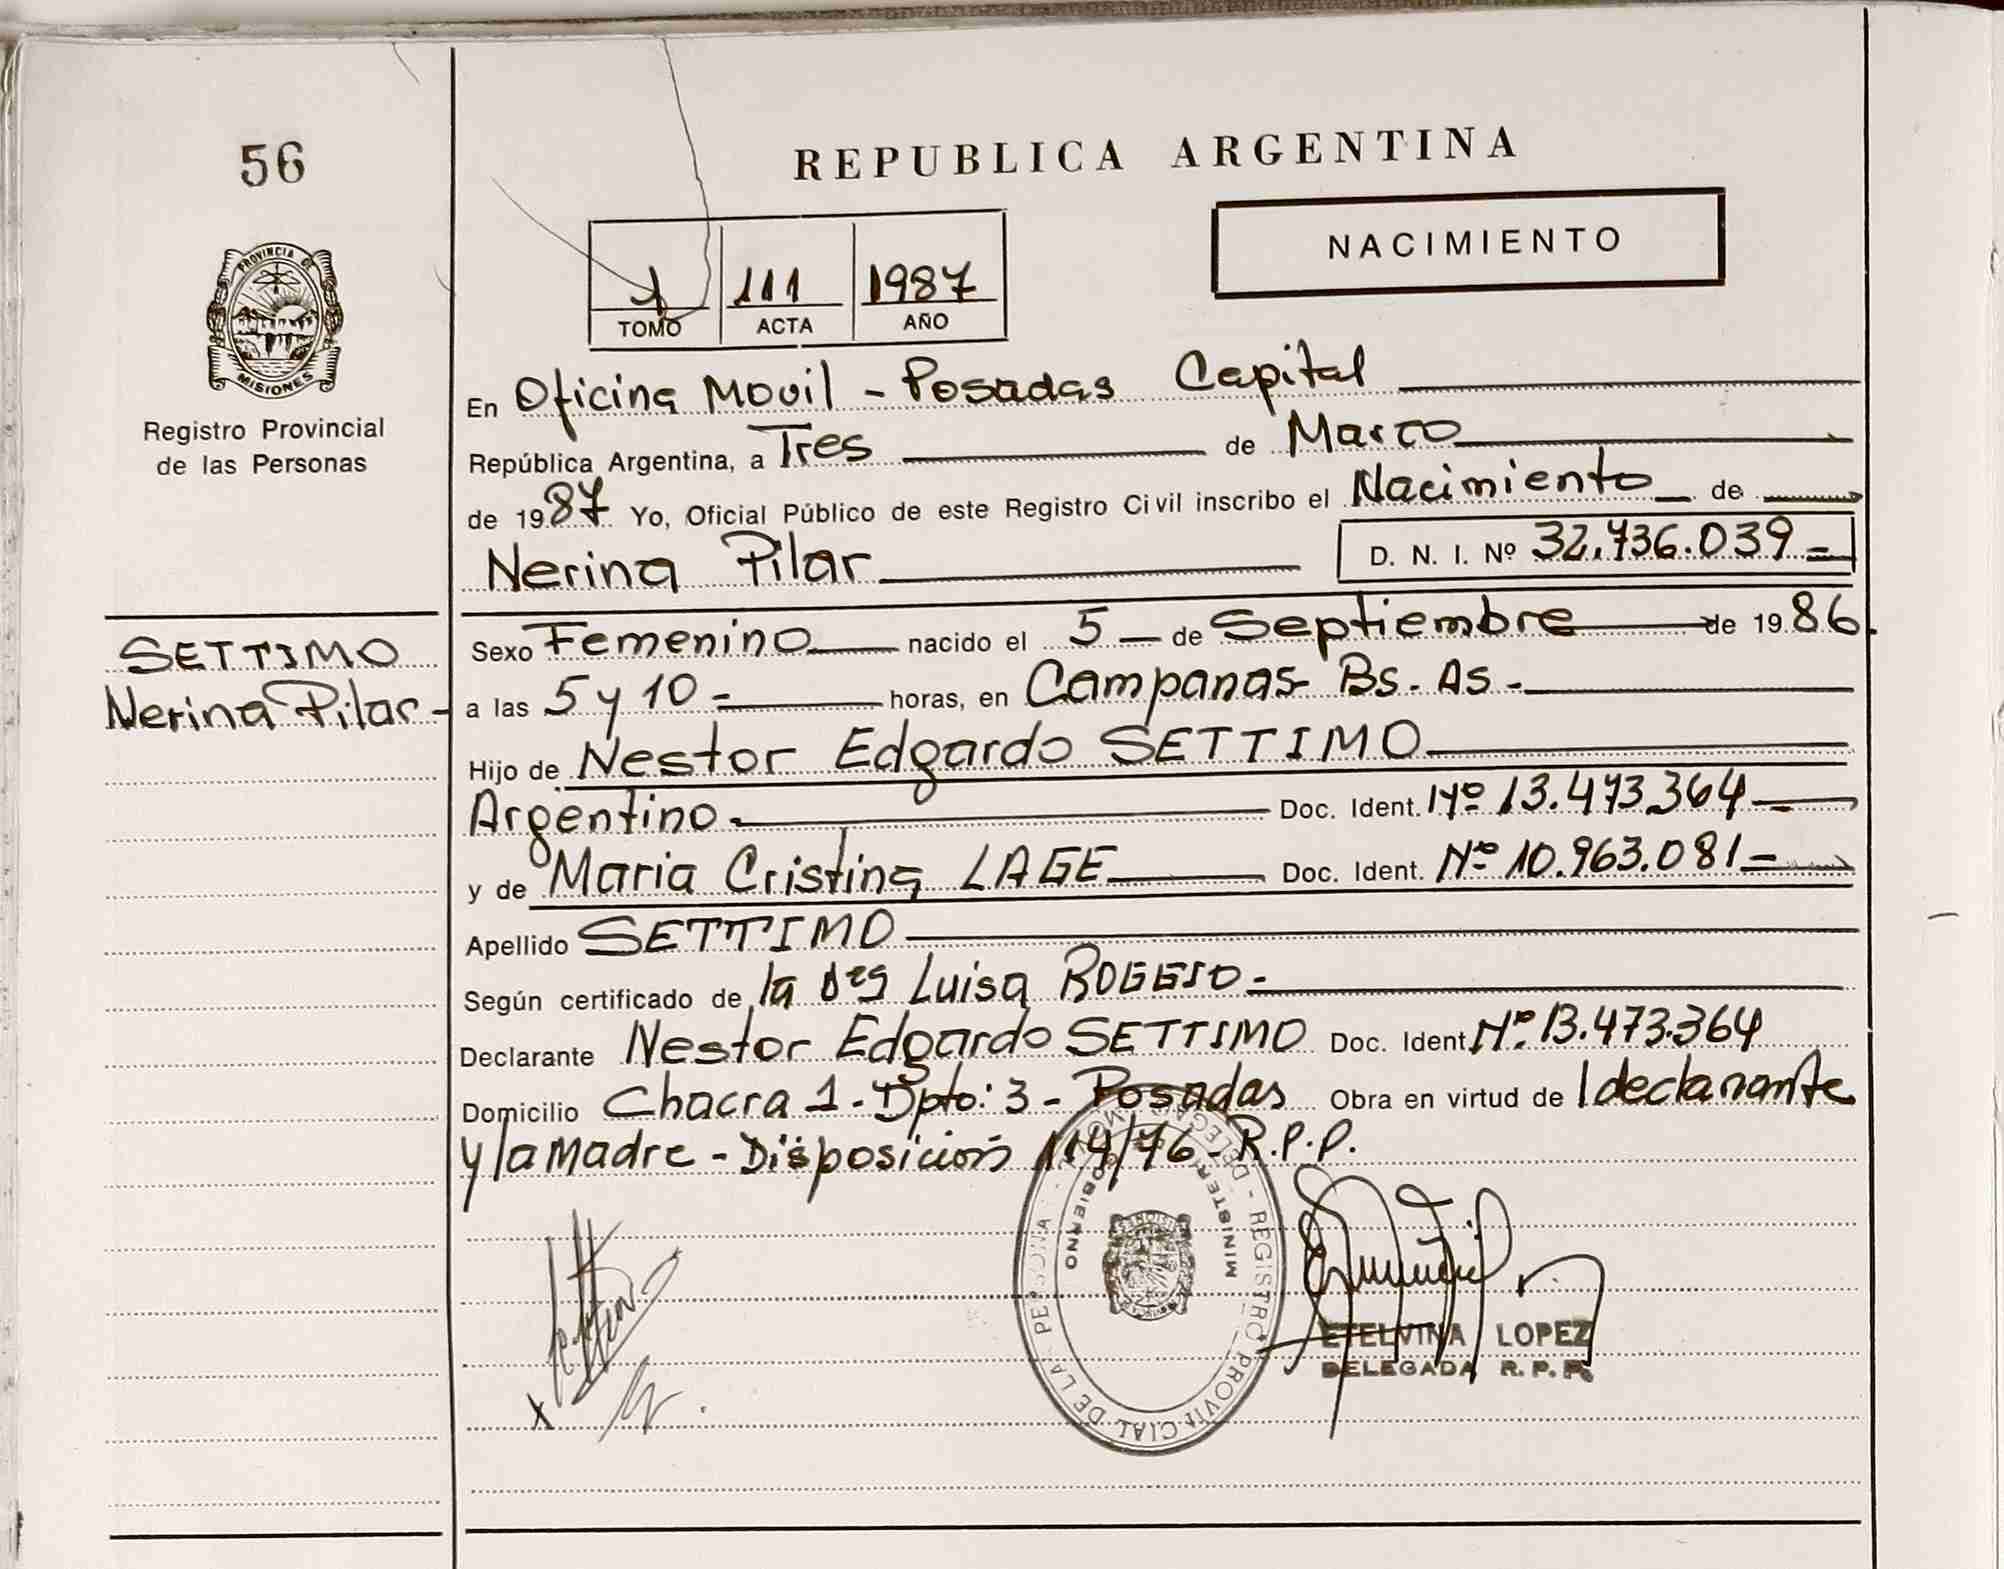 56
REPUBLICA ARGENTINA
NACIMIENTO
1 111 1987
TOMO ACTA AÑO
PROVINCIA DE MISIONES
Registro Provincial
de las Personas
En Oficina Movil - Posadas Capital
República Argentina, a Tres de Marzo
de 1987 Yo, Oficial Público de este Registro Civil inscribo el Nacimiento de
Nerina Pilar D. N. I. Nº 32.736.039
SETTIMO
Nerina Pilar -
Sexo Femenino nacido el 5 de Septiembre de 1986
a las 5 y 10 - horas, en Campanas Bs. As -
Hijo de Nestor Edgardo SETTIMO
Argentino - Doc. Ident. Nº 13.473.364
y de Maria Cristina LAGE Doc. Ident. Nº 10.963.081
Apellido SETTIMO
Según certificado de la Luisa
Declarante Nestor Edgardo SETTIMO Doc. Ident. Nº 13.473.364
Domicilio Chacra 1 - Dpto: 3 - Posadas Obra en virtud de l declarante
y la Madre - Disposición 114/76 - R.P.P.
REGISTRO PROVINCIAL DE LAS PERSONAS
MINISTERIO GOBIERNO
ETELVINA LOPEZ
DELEGADA R. P. P.